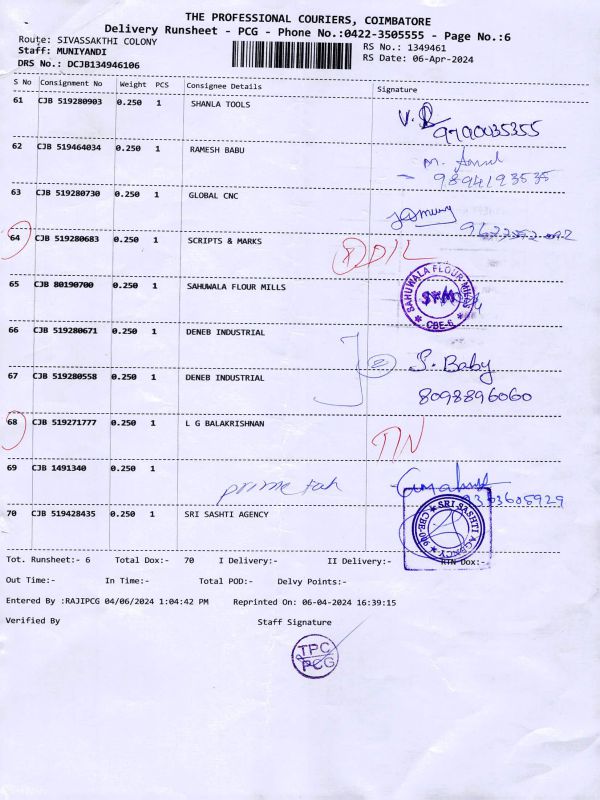 THE PROFESSIONAL COURIERS, COIMBATORE
Delivery Runsheet - PCG - Phone No.:0422-3505555 - Page No.:6
Route: SIVASSAKTHI COLONY
RS No.: 1349461
Staff: MUNIYANDI
RS Date: 06-Apr-2024
DRS No.: DCJB134946106
S No Consignment No Weight PCS Consignee Details Signature
61 CJB 519280903 0.250 1 SHANLA TOOLS
9790035355
62 CJB 519464034 0.250 1 RAMESH BABU
9894193535
63 CJB 519280730 0.250 1 GLOBAL CNC
64 CJB 519280683 0.250 1 SCRIPTS & MARKS
65 CJB 80190700 0.250 1 SAHUWALA FLOUR MILLS
SAHUWALA FLOUR MILLS
SFM
CBE-6
66 CJB 519280671 0.250 1 DENEB INDUSTRIAL
2 P. Baby
67 CJB 519280558 0.250 1 DENEB INDUSTRIAL
8098896060
68 CJB 519271777 0.250 1 L G BALAKRISHNAN
69 CJB 1491340 0.250 1
9363605929
70 CJB 519428435 0.250 1 SRI SASHTI AGENCY
SRI SASHTI AGENCY
Tot. Runsheet:- 6 Total Dox:- 70 I Delivery:- II Delivery:- RTN Dox:-
Out Time:- In Time:- Total POD:- Delvy Points:-
Entered By :RAJIPCG 04/06/2024 1:04:42 PM Reprinted On: 06-04-2024 16:39:15
Verified By Staff Signature
TPC
PCG